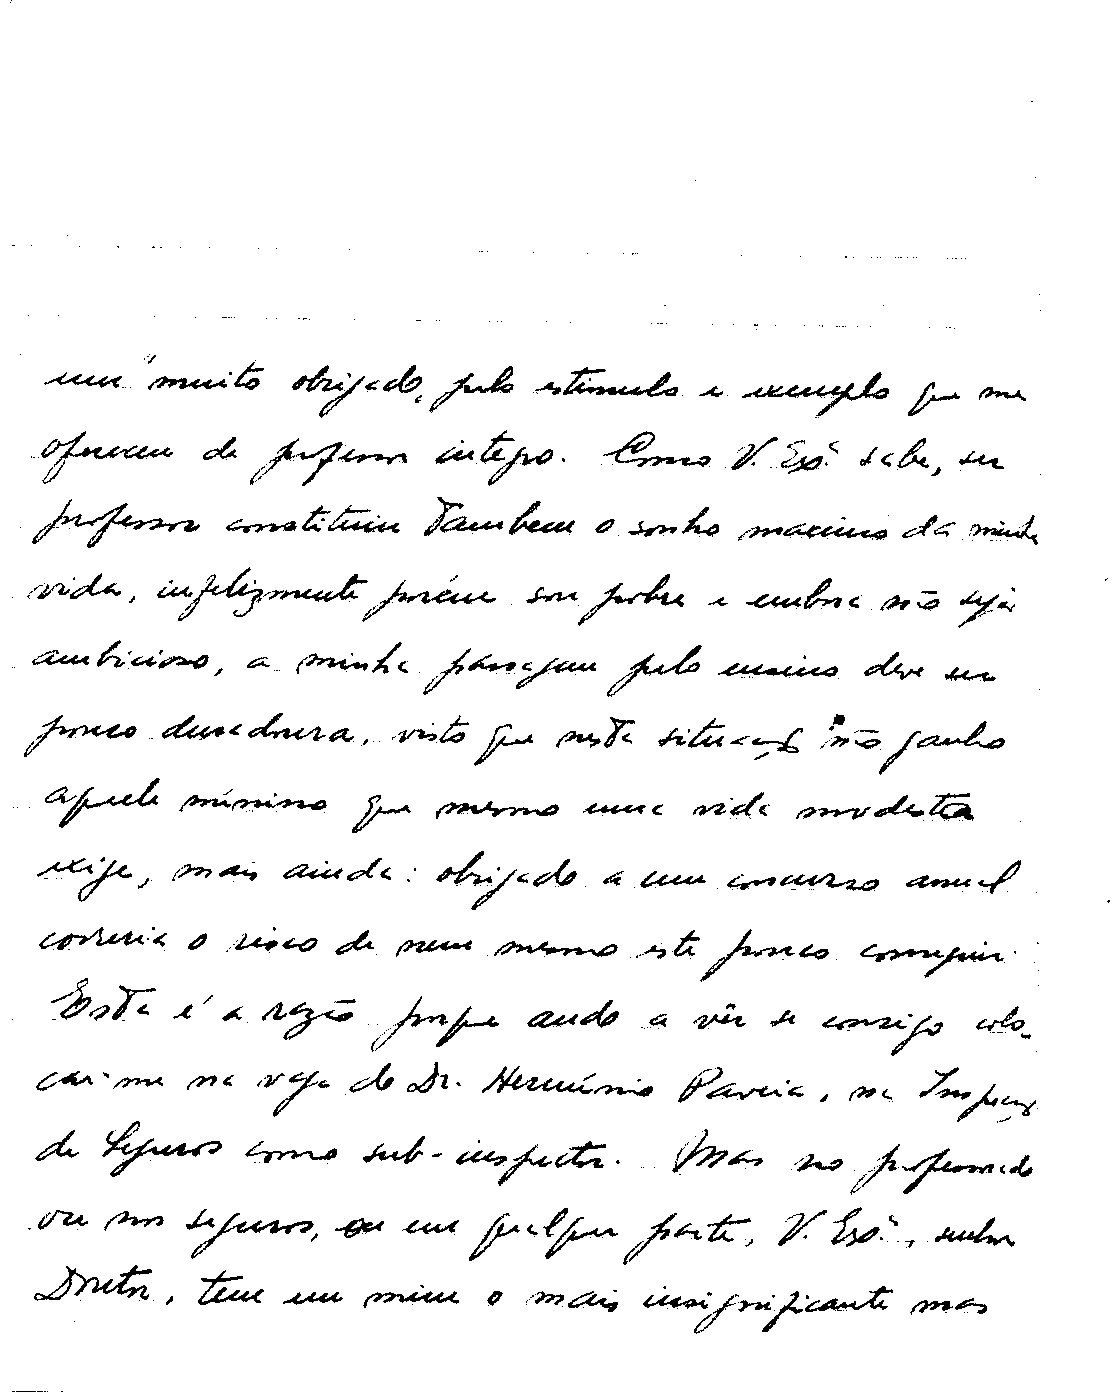 um "muito obrigado, pelo estimulo e exemplo que me
ofereceu de professor integro. Como V. Exª sabe, ser
professor constituiu tambem o sonho maximo da minha
vida, infelizmente porém sou pobre e embora não seja
ambicioso, a minha passagem pelo ensino deve ser
pouco duradoura, visto que nesta situação não ganho
aquele minimo que mesmo uma vida modesta
exige, mais ainda: obrigado a um concurso anual
correria o risco de nem mesmo este pouco conseguir.
Esta é a razão porque ando a vêr se consigo colo-
car-me na vaga do Dr. Hermínio Pareia, na Inspecção
de Seguros como sub-inspector. Mas no professorado
ou nos seguros, ou em qualquer parte, V. Exª, senhor
Doutor, tem em mim o mais insignificante mas